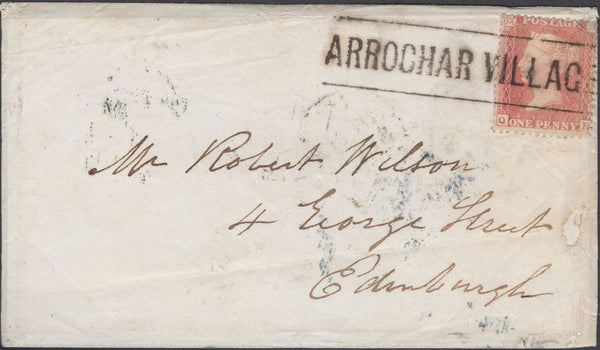 POSTAGE
ARROCHAR VILLAG
ONE PENNY
Mr Robert Wilson
4 George Street
Edinburgh